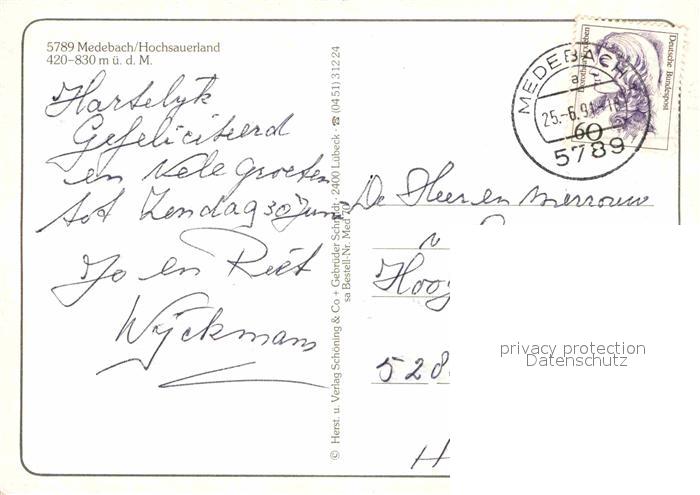 5789 Medebach/Hochsauerland
420–830 m ü. d. M.
Hartelyk
Gefeliciteerd
en vele groeten
tot Zondag 30 Juni
Jo en Riet
Wyckmans
© Herst. u. Verlag Schöning & Co + Gebrüder Schmidt, 2400 Lübeck · ☎ (04 51) 3 12 24
sa Bestell-Nr. Med 70
Deutsche Bundespost
60
MEDEBACH
a
25.-6.91.-18
5789
De Heer en mevrouw
Hoog
528
H
privacy protection
Datenschutz